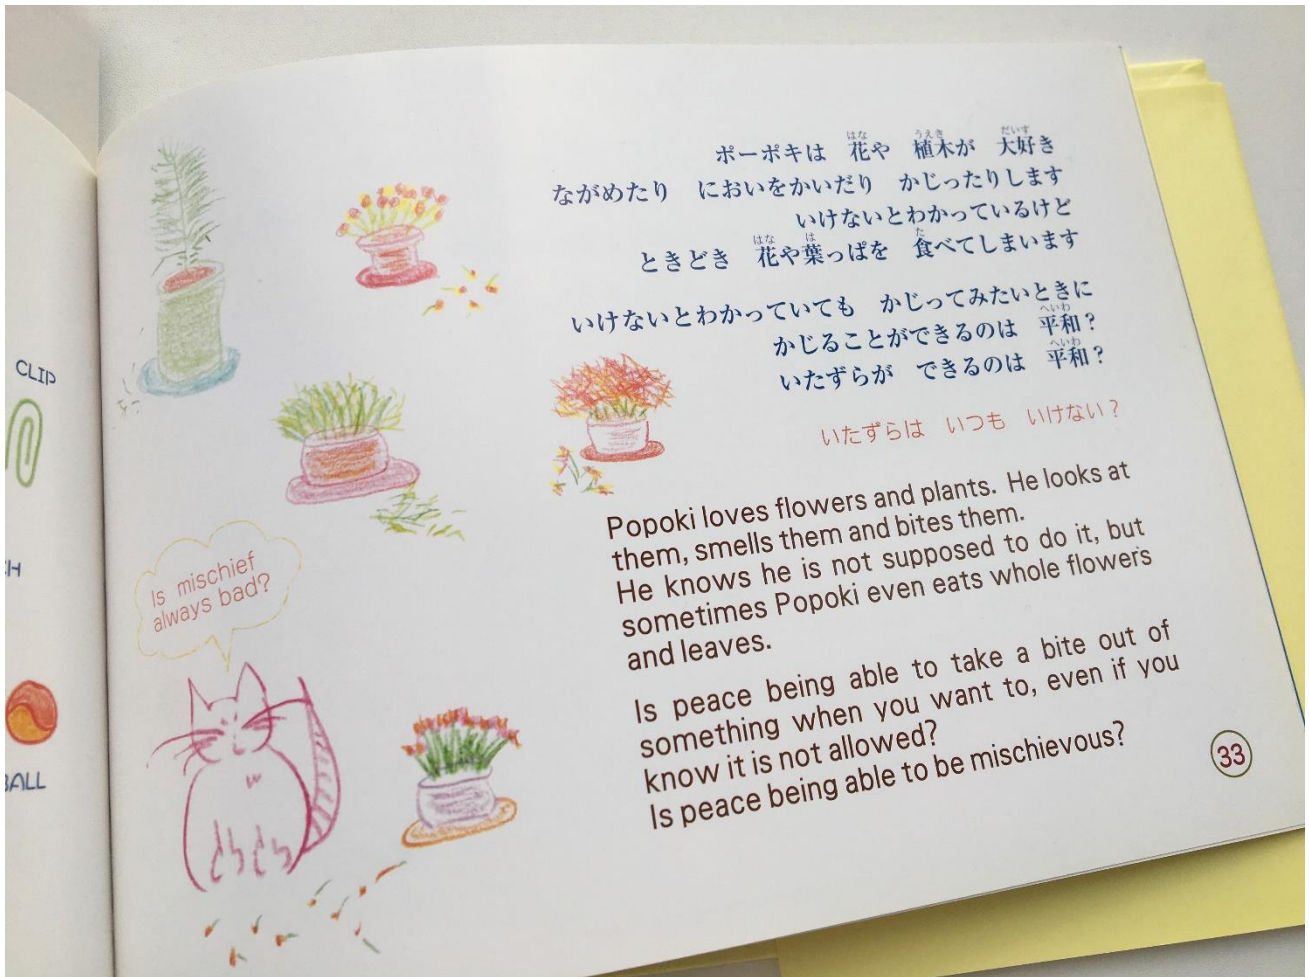 CLIP
BALL
ポーポキは 花や 植木が 大好き
ながめたり においをかいだり かじったりします
いけないとわかっているけど
ときどき 花や葉っぱを 食べてしまいます
いけないとわかっていても かじってみたいときに
かじることができるのは 平和?
いたずらが できるのは 平和?
いたずらは いつも いけない?
Popoki loves flowers and plants. He looks at
them, smells them and bites them.
He knows he is not supposed to do it, but
sometimes Popoki even eats whole flowers
and leaves.
Is peace being able to take a bite out of
something when you want to, even if you
know it is not allowed?
Is peace being able to be mischievous?
Is mischief
always bad?
33